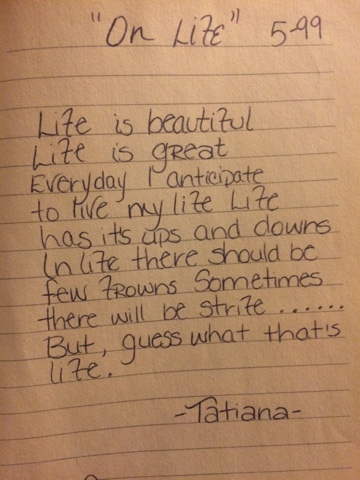 "On Life" 5-99
Life is beautiful
Life is great
Everyday I anticipate
to live my life Life
has its ups and downs
In life there should be
few frowns Sometimes
there will be strife ......
But, guess what that's
life.
-Tatiana-